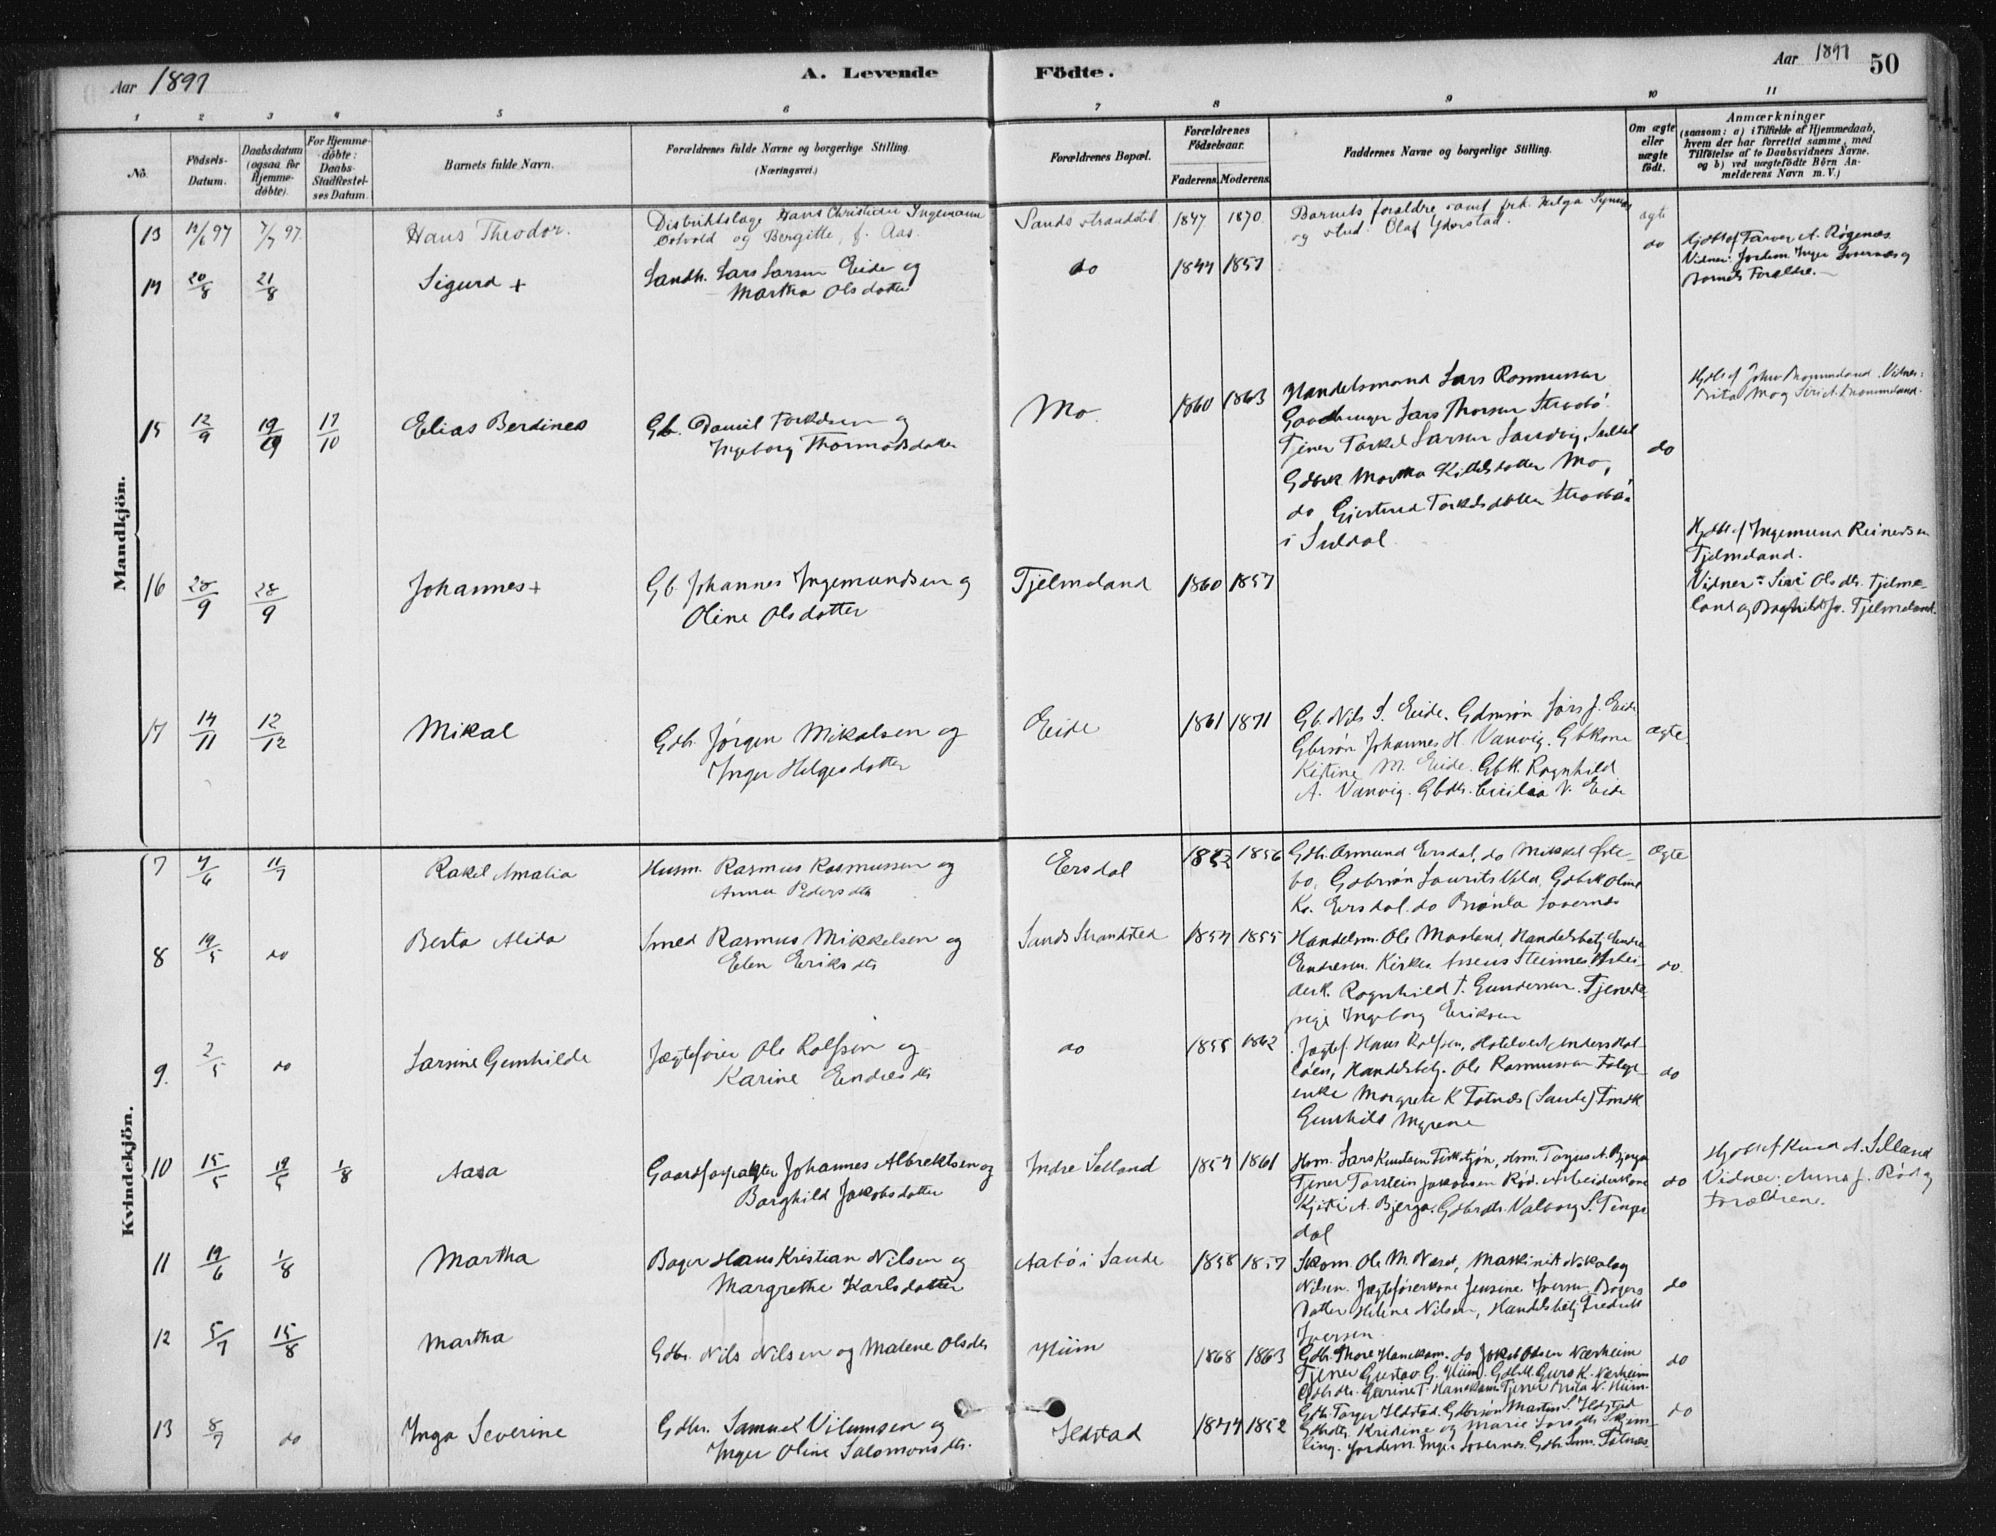 Aar 1897
A. Levende
Födte.
Aar 1897
50
1 2 3 4 5 6 7 8 9 10 11
No.
Födsels-Datum.
Daabsdatum (ogsaa for Hjemme-döbte).
For Hjemme-döbte: Daabs-Stadfæstel-ses Datum.
Barnets fulde Navn.
Forældrenes fulde Navne og borgerlige Stilling. (Næringsvei.)
Forældrenes Bopæl.
Forældrenes Födselsaar.
Faderens. Moderens.
Faddernes Navne og borgerlige Stilling.
Om ægte eller uægte födt.
Anmærkninger
(saasom: a) i Tilfælde af Hjemmedaab, hvem der har forrettet samme, med Tilföielse af to Daabsvidners Navne. og b) ved uægtefödte Börn An-melderens Navn m. V.)
Mandkjön.
13 12/6 97 7/7 97 Hans Theodor.
Distriktslæge Hans Christian Ingemann
og Bergitte, f. Aas.
Sands strandsted 1847 1870
Barnets forældre samt frk. Helga
og stud. Olaf
ægte
14 20/8 21/8 Sigurd +
Sandh. Lars Larsen Eide og
Martha Olsdatter
do 1844 1857 do
Hjdbt af A. Røgenes.
Vidner: Jordem. Inger Lovernæs og
Barnets Forældre.
15 12/9 19/9 17/10 Elias Berdines
Gb. Daniel Torkelsen og
Ingeborg Thormodsdatter
Mo. 1860 1863
Handelsmand Lars Rasmussen
Gaardbruger Lars Thorsen Straabø.
Tjener Torkel Larsen Sandvig, Suldal
Gdbrk Martha Kittelsdatter Mo,
do Gjertrud Torkelsdatter Straabø
i Suldal.
do
Hjdbt af John Vidner:
Brita Mo og Siri
16 28/9 28/9 Johannes +
Gb. Johannes Ingemundsen og
Oline Olsdatter
Tjelmeland 1860 1857
Hjdbt af Ingemund Reinertsen
Tjelmeland.
Vidner: Siri Olsdtr. Tjelme-
land og Tjelmeland.
17 14/11 12/12 Mikal
Gdb. Jørgen Mikalsen og
Inger Helgesdatter
Eide 1861 1871
Gb. Nils S. Eide. Gdmsøn Lars J. Eide
Gbrsøn Johannes H. Vanvig. Gbkone
Kistine M. Eide. Gbk. Ragnhild
A. Vanvig. Gbdtr. N. Eide
Ægte.
Kvindekjön.
7 4/6 11/7 Rakel Amalia
Husm. Rasmus Rasmussen og
Anna Pedersdtr
Eersdal 1856
Gdb. Asmund Eersdal, do Mikkel Øste-
bø, Gdbrsøn Laurits Gdbrk Oline
Kr. Eersdal. do Lovernæs
Ægte
8 19/5 do Berta Alida
Smed Rasmus Mikkelsen og
Elen Eriksdtr
Sands Strandsted 1854 1855
Handelsm. Ole Maaland, Handelsbetj Endre
Endresen. Steinnes Arbei-
derk. Ragnhild T. Gundersen. Tjeneste
pige Ingeborg Eriksen
do
9. 2/5 do Larsine Gunhilde
Jægtefører Ole Rolfsen og
Karine Endresdtr
do 1855 1862
Jægtef. Hans Rolfsen, Hotelvert Anders
Handelsbetj. Ole Rasmussen
enke Margrete K. Fatnæs (Sande)
Gunhild Myrene
do
10 15/5 19/5 1/8 Aasa
Gaardforpagter Johannes Albrektsen og
Borghild Jakobsdatter
Indre Selland 1854 1861
Hsm. Lars Knutsen Hsm. Torjus A. Bjerga
Tjener Torstein Jakobsen Rød. Arbeiderkone
Kjisti A. Bjerga. Gdbrdtr. Valborg S. Tengs
dal
do
Hjdbt af Knud A. Selland
Vidner: Anna J. Rød og
Forældrene.
11 19/6 1/8 Martha
Bager Hans Kristian Nilsen og
Margrethe Karlsdatter
Aabø i Sande 1858 1857
Skom. Ole M. Næss, Maskinist Nikolay
Nilsen. Jægtførerkone Jensine Iversen Bagers
datter Heline Nilsen, Handelsbetj. Fredrik
Iversen.
do
12 5/7 15/8 Martha
Gdbr. Nils Nilsen og Malene Olsdtr
Hiim 1868 1863
Gdbr. Thore Hanakam. do Jakob Olsen Nærheim
Tjener Gustav G. Hiim. Gdbk. Guro K. Nærheim
Gdbrdtr. T. Hanakam. Tjener Brita N. Hiim.
do
13 8/7 do Inga Severine
Gdbr. Samuel Vilumsen og
Inger Oline Salomonsdtr.
Ilstad 1844 1852
Gdb. Torger Ilstad. Gdbrsøn Martin S. Ilstad
Gdbrdtr. Kristine og Marie Larsdtr
Jordem. Inger Lovernæs. Gdb. Fatnæs
do